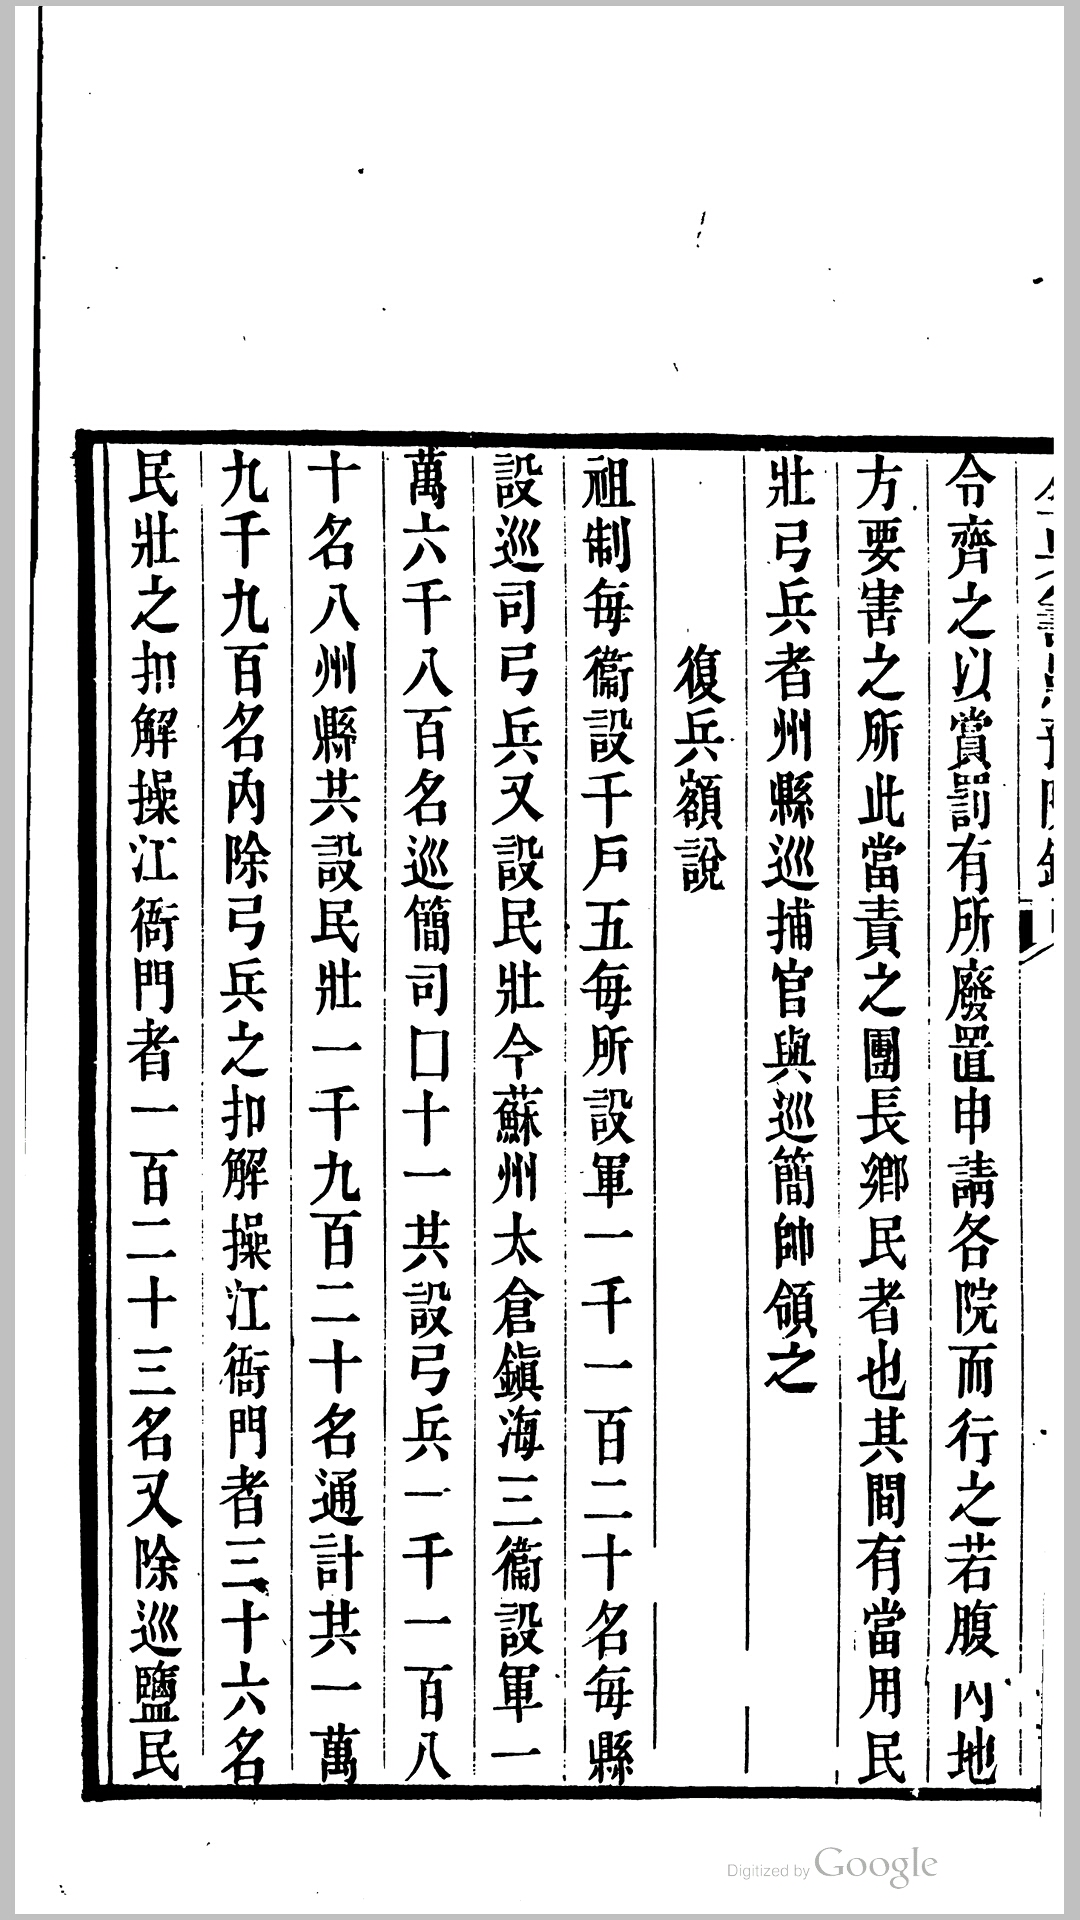 令齊之以賞罰有所廢置申請各院而行之若腹內地
方要害之所此當責之團長鄉民者也其間有當用民
壯弓兵者州縣巡捕官與巡簡帥領之
復兵額說
祖制每衞設千戶五每所設軍一千一百二十名每縣
設巡司弓兵又設民壯今蘇州太倉鎭海三衞設軍一
萬六千八百名巡簡司囗十一共設弓兵一千一百八
十名八州縣共設民壯一千九百二十名通計共一萬
九千九百名內除弓兵之扣解操江衙門者三十六名
民壯之扣解操江衙門者一百二十三名又除巡鹽民
Digitized by Google